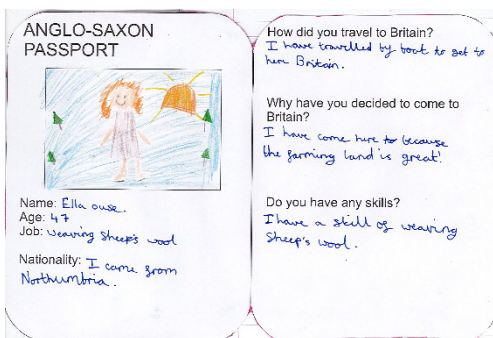 ANGLO-SAXON
PASSPORT
Name: Ella ouse.
Age: 47
Job: weaving sheep's wool
Nationality: I came from
Northumbria.
How did you travel to Britain?
I have travelled by boat to get to
here Britain.
Why have you decided to come to
Britain?
I have come here to because
the farming land is great!
Do you have any skills?
I have a skill of weaving
Sheep's wool.